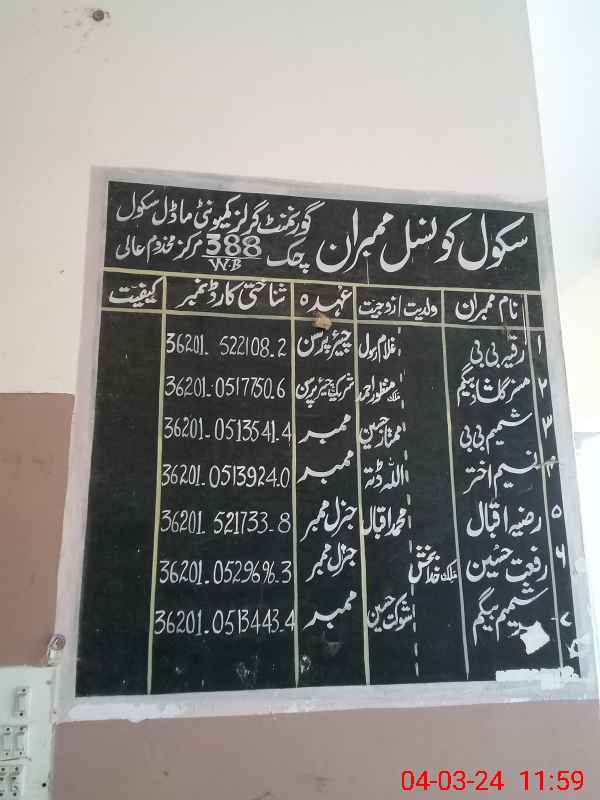 سکول کونسل ممبران
گورنمنٹ گرلز کمیونٹی ماڈل سکول
چک 388 مرکز مخدوم عالی
W.B
نام ممبران ولدیت زوجیت عہدہ شناختی کارڈ نمبر کیفیت
۱ رقیہ بی بی غلام رسول چیئر پرسن 36201-522108-2
۲ مسز گلشاد بیگم ملک منظور احمد شریک چیئر پرسن 36201-0517750.6
۳ شمیم بی بی ممتاز حسین ممبر 36201-0513541.4
۴ نسیم اختر اللہ دتہ ممبر 36201-0513924.0
۵ رضیہ اقبال محمد اقبال جنرل ممبر 36201-521733-8
۶ رفعت حسین ملک خدا بخش جنرل ممبر 36201-0529696.3
۷ شمیم بیگم شوکت حسین ممبر 36201-0513443.4
04-03-24 11:59